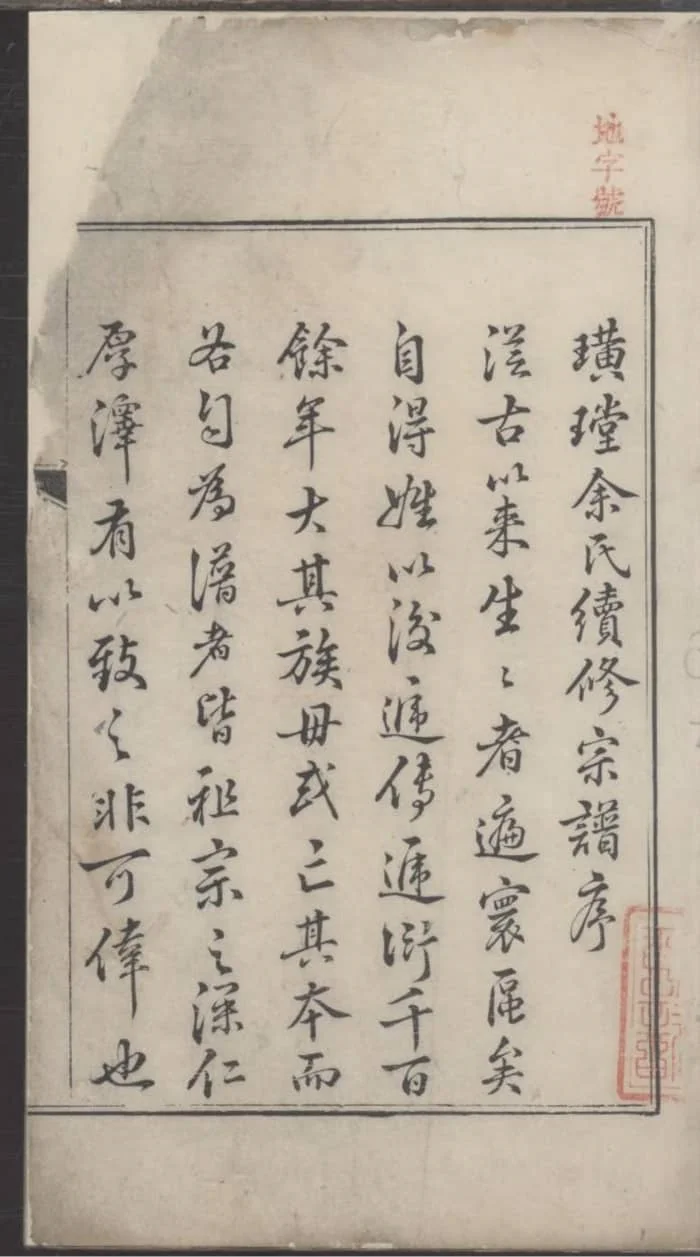 地字號
璜瑝余氏續修宗譜序
從古以來生〻者遍寰區矣
自得姓以後遞傳遞衍千百
餘年大其族毋或亡其本而
各自為譜者皆祖宗之深仁
厚澤有以致之非可偉也